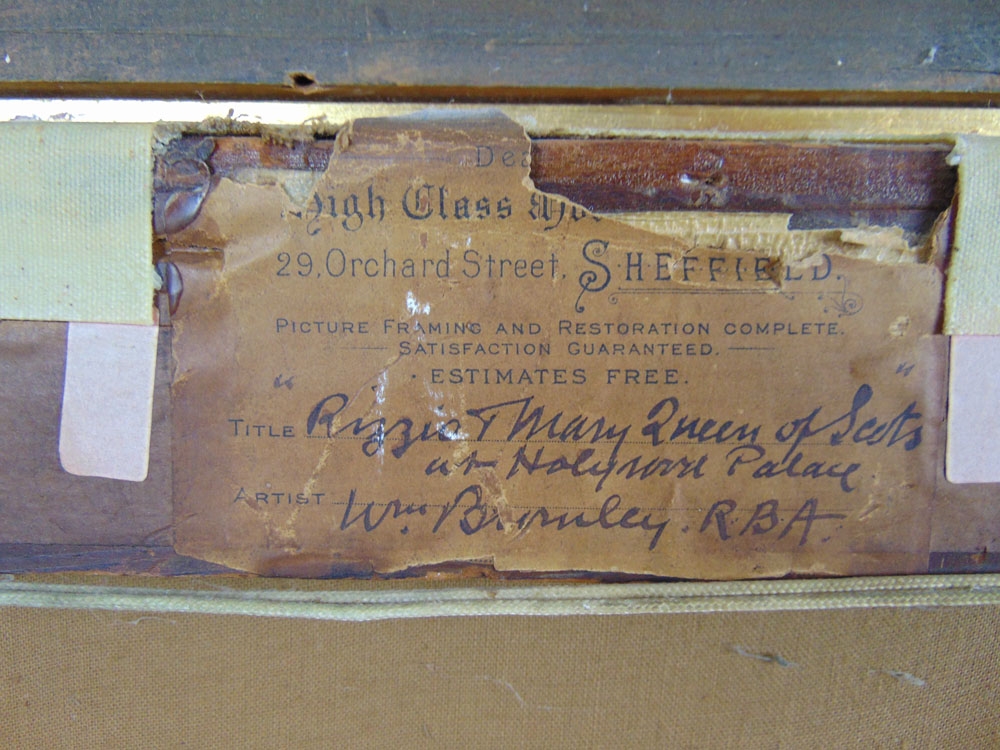 De
High Class Mo
29, Orchard Street, SHEFFIELD.
PICTURE FRAMING AND RESTORATION COMPLETE.
SATISFACTION GUARANTEED.
ESTIMATES FREE.
TITLE "Rizzio & Mary Queen of Scots"
at Holyrood Palace
ARTIST Wm Bromley. RBA.